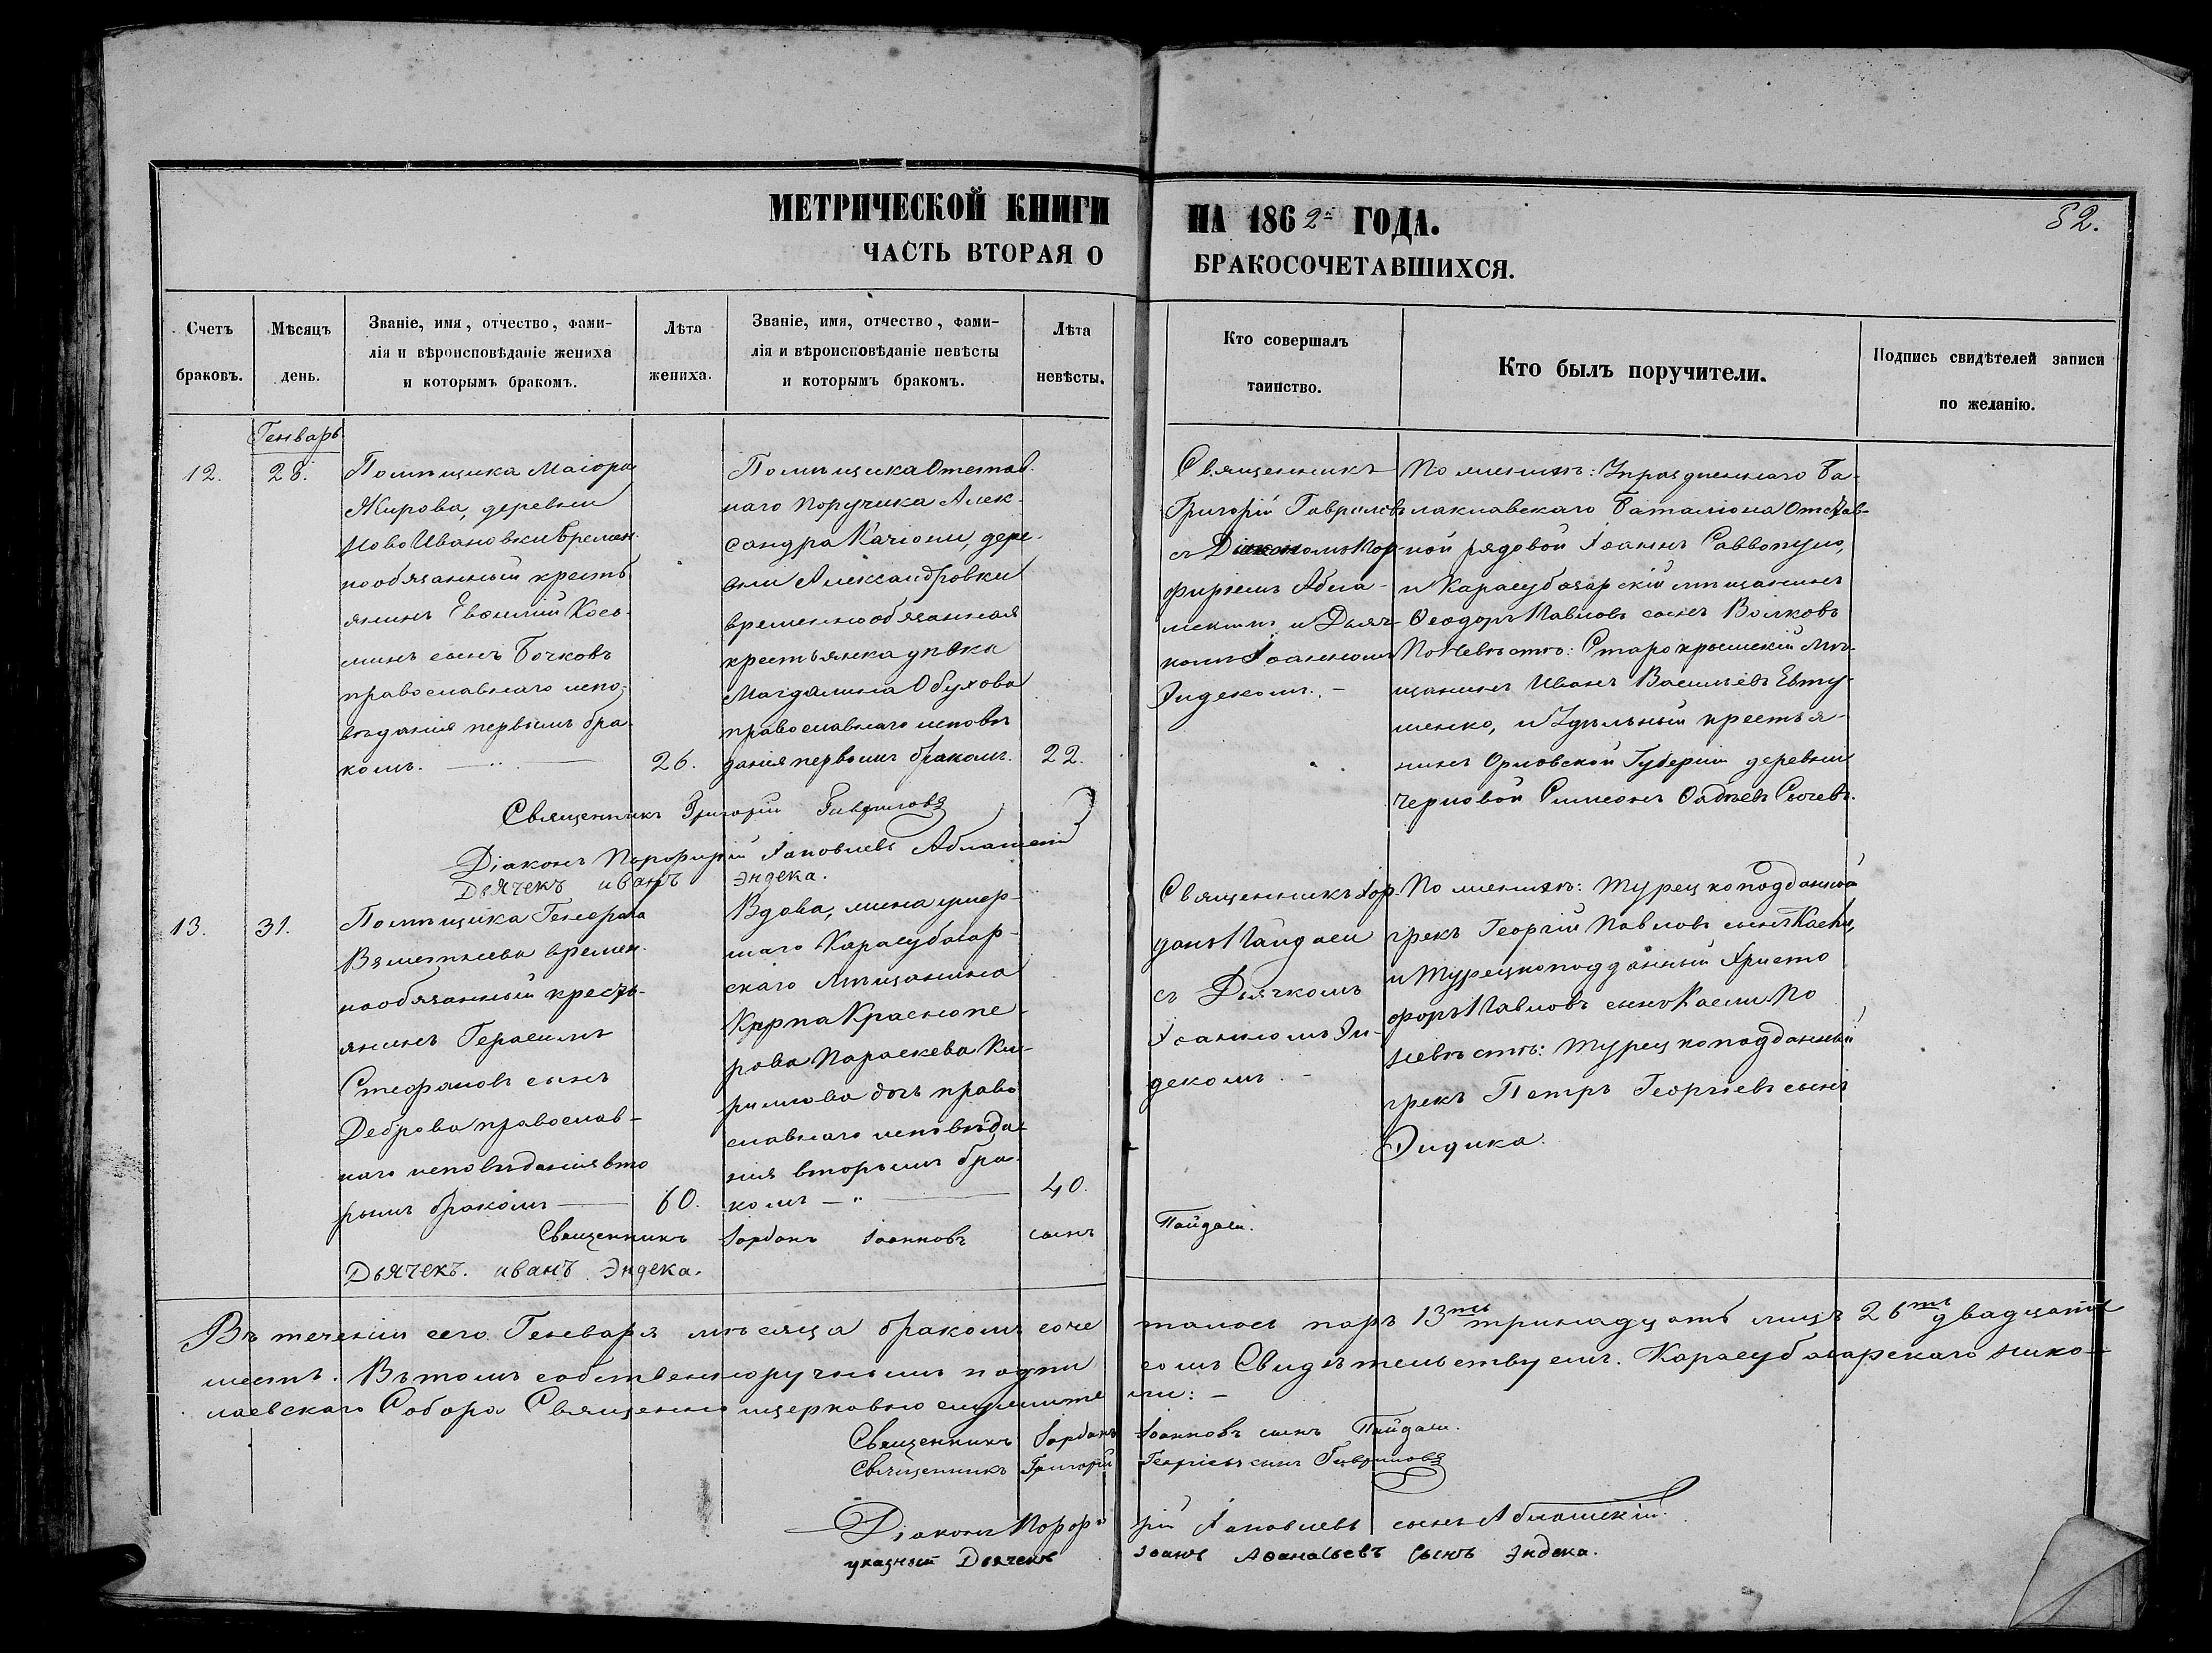 МЕТРИЧЕСКОЙ КНИГИ НА 1862 ГОДА.
82.
ЧАСТЬ ВТОРАЯ О БРАКОСОЧЕТАВШИХСЯ.
Счетъ браковъ.
Мѣсяцъ день.
Званіе, имя, отчество, фами-
лія и вѣроисповѣданіе жениха
и которымъ бракомъ.
Лѣта жениха.
Званіе, имя, отчество, фами-
лія и вѣроисповѣданіе невѣсты
и которымъ бракомъ.
Лѣта невѣсты.
Кто совершалъ
таинство.
Кто былъ поручители.
Подпись свидѣтелей записи
по желанію.
Генварь
12.
28.
Помѣщика Маіора
Жирова, деревни
Ново Ивановки времен
нообязанный кресть
янинъ Евѳимій Кось-
минъ сынъ Бочковъ
православнаго испо-
вѣданія первымъ бра-
комъ.
26.
Помѣщика Отстав
наго Поручика Алек-
сандра Качіони, дере-
вни Александровки
временнообязанная
крестьянка дѣвка
Магдалина Обухова
православнаго исповѣ
данія первымъ бракомъ.
22.
Священникъ
Григорій Гавриловъ
съ Діакономъ Пор-
фиріемъ Абла-
и Дьяч-
комъ Іоанномъ
Эндекомъ. -
По женихѣ: Упраздненнаго Ба-
лаклавскаго Баталіона Отстав-
ной рядовой Іоаннъ Саввопуло,
и Карасубазарскій мѣщанинъ
Ѳеодоръ Павловъ сынъ Волковъ
По Невѣстѣ: Старокрымскій Мѣ-
щанинъ Иванъ Васильевъ Евту-
шенко, и Удѣльный крестья-
нинъ Орловской Губерніи деревни
Черновой Симеонъ Сычевъ.
Священникъ Григорій Гавриловъ
Діаконъ Порфирій Іаковлевъ Аблашскій
Дьячекъ иванъ Эндека.
13.
31.
Помѣщика Генерала
времен
нообязанный кресть-
янинъ Герасимъ
Стефановъ сынъ
Деброва православ-
наго исповѣданія вто
рымъ бракомъ
60.
Вдова, жена умер-
шаго Карасубазар-
скаго Мѣщанина
Карпа Красно
рова Параскева Ки-
рилова дочь право
славнаго исповѣда-
нія вторымъ бра-
комъ - " -
40.
Священникъ Іор-
данъ Пайдаси
съ Дьячкомъ
Іоанномъ Эн-
декомъ. -
По женихѣ: Турецкоподданный
грекъ Георгій Павловъ сынъ
и Турецкоподданный Христо
форъ Павловъ сынъ По
Невѣстѣ: Турецкоподданный
грекъ Петръ Георгіевъ сынъ
Священникъ Іорданъ Іоанновъ сынъ Пайдаси.
Дьячекъ. иванъ Эндека.
Въ теченіи сего Генваря мѣсяца бракомъ соче талось паръ 13ть тринадцать лицъ 26ть двадцать
шесть. Въ томъ собственноручнымъ подпи сомъ Свидѣтельствуемъ. Карасубазарскаго Нико-
лаевскаго Собора Священно и церковно служите ли: -
Священникъ Іорданъ Іоанновъ сынъ Пайдаси.
Священникъ Григорій Георгіевъ сынъ Гавриловъ
Діаконъ Порфи рій Іаковлевъ сынъ Аблашскій.
указный Дьячекъ Іоанъ Аѳанасьевъ сынъ Эндека.